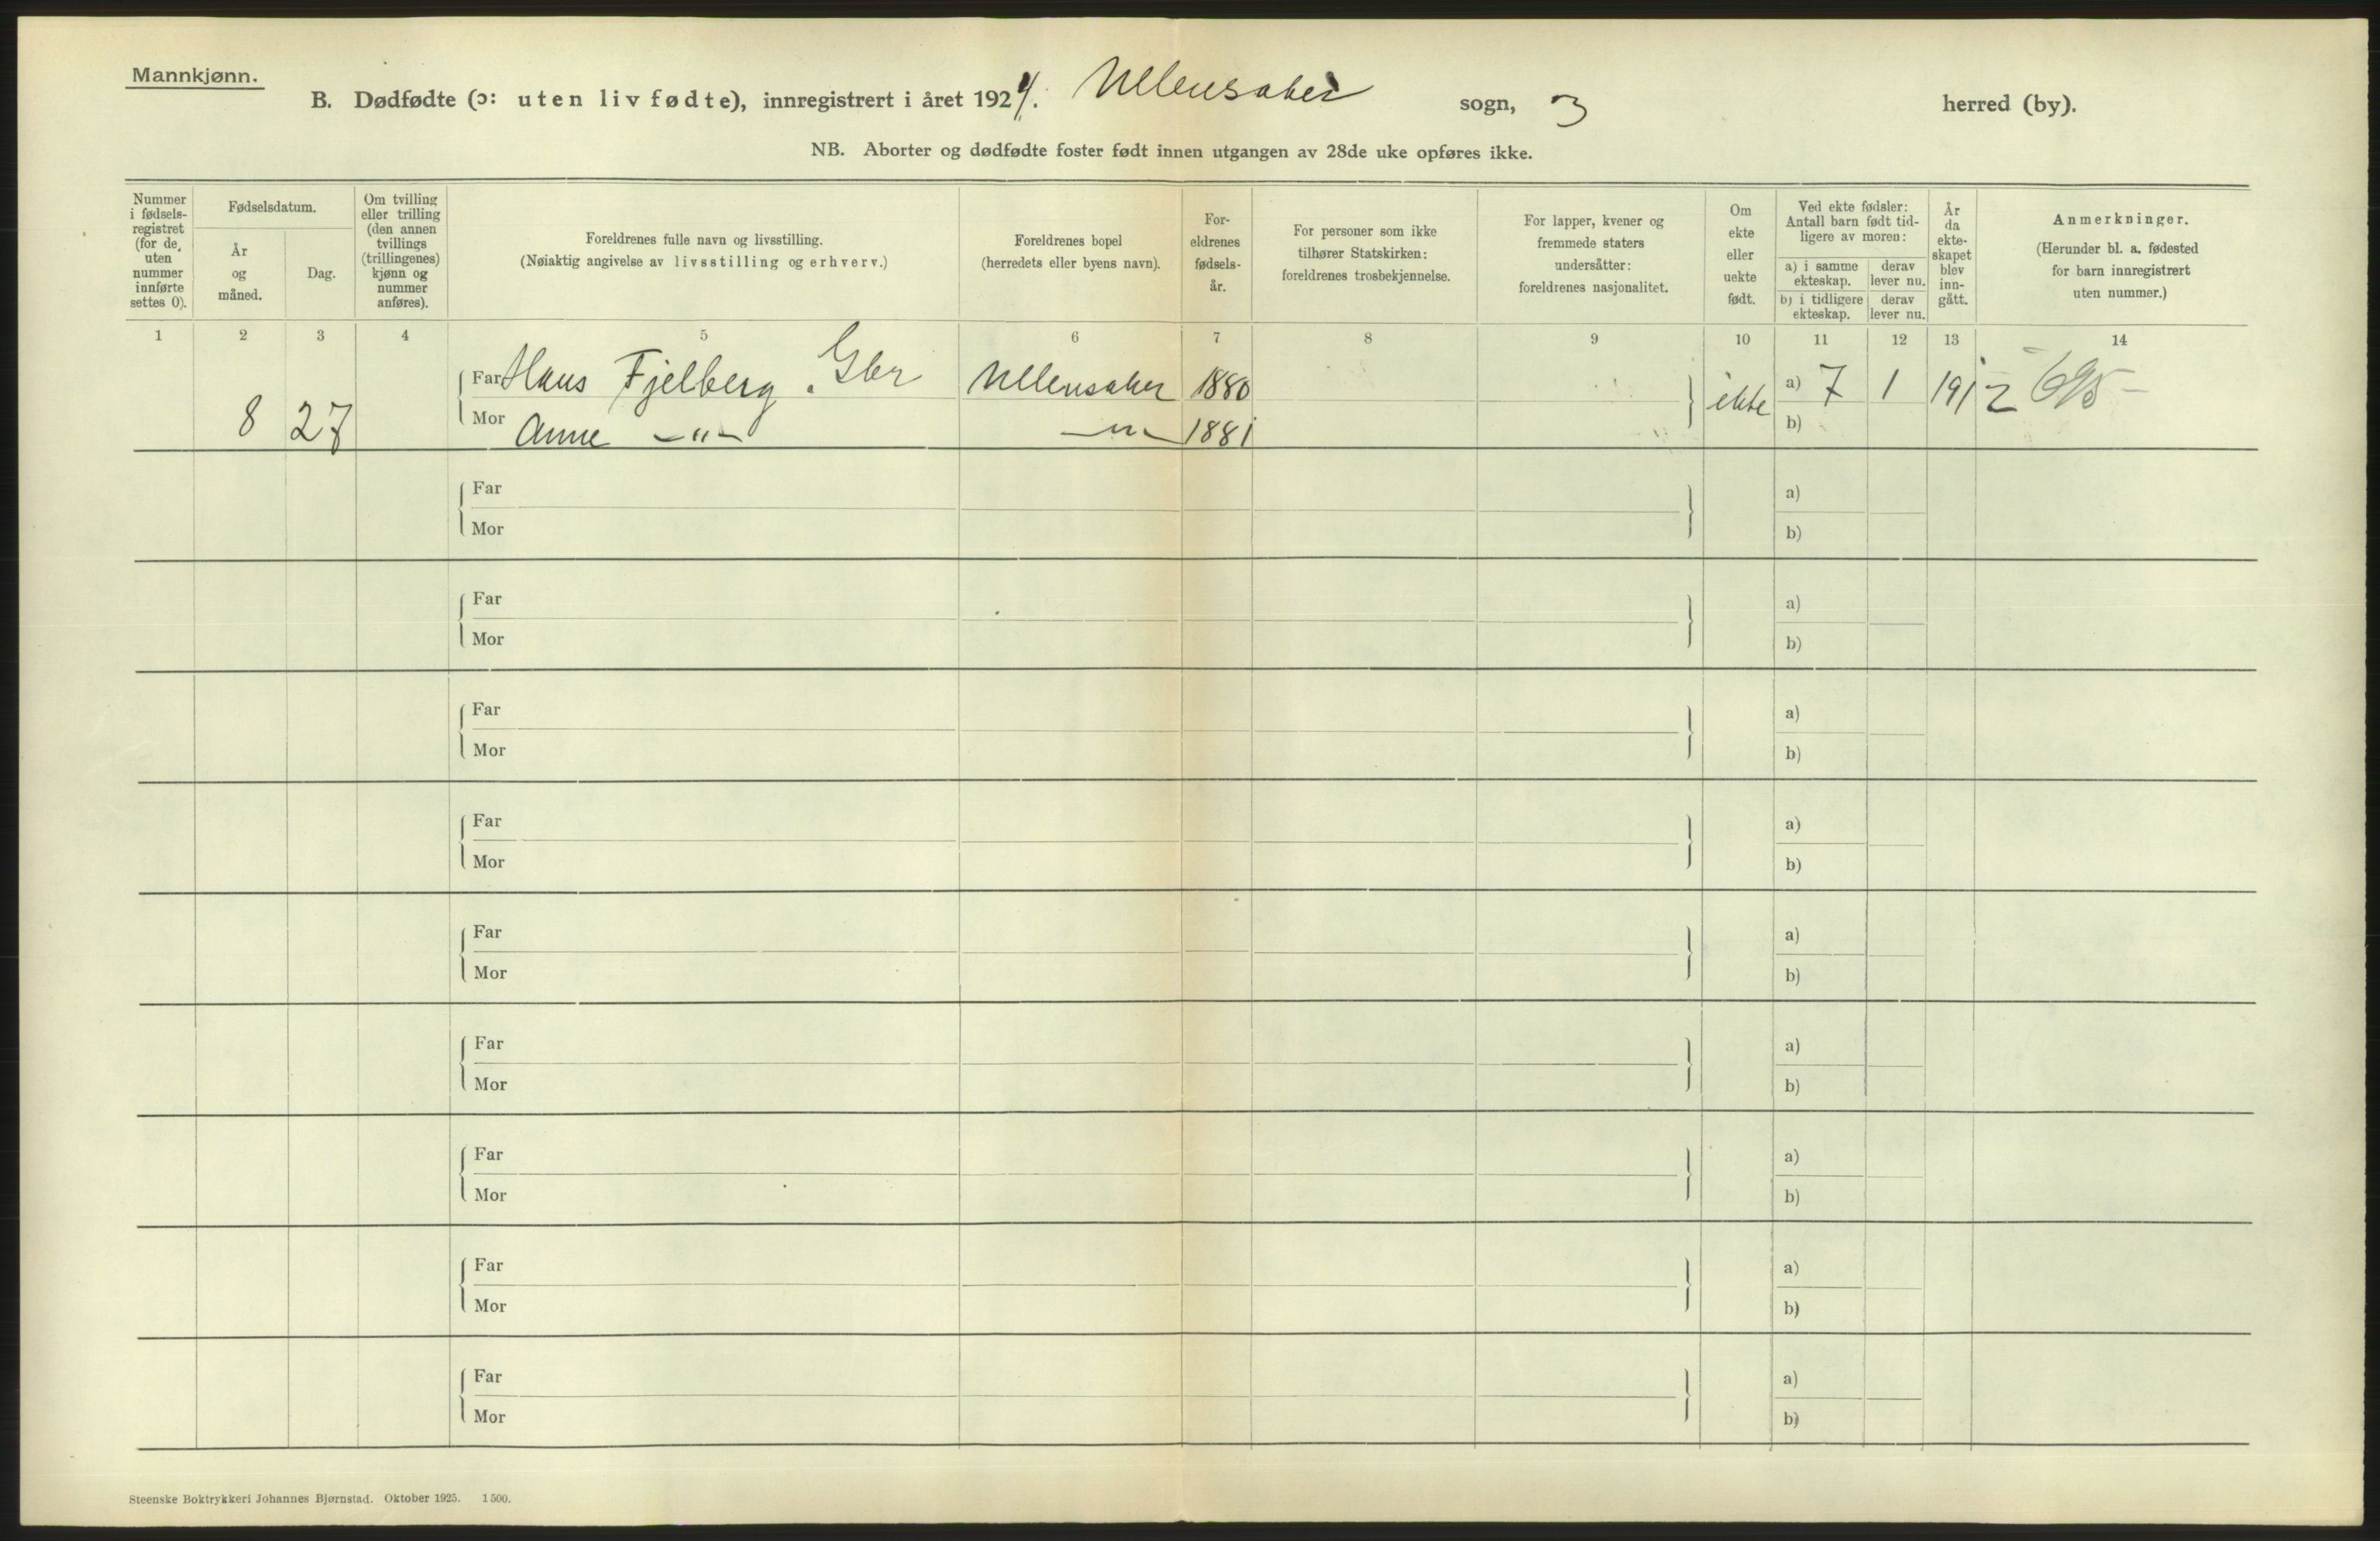 Mannkjønn.
B. Dødfødte (ɔ: uten liv fødte), innregistrert i året 1924. Ullensaker sogn, 3 herred (by).
NB. Aborter og dødfødte foster født innen utgangen av 28de uke opføres ikke.
Nummer i fødsels-registret (for de uten nummer innførte settes 0).
Fødselsdatum.
År og måned.
Dag.
Om tvilling eller trilling (den annen tvillings (trillingenes) kjønn og nummer anføres).
Foreldrenes fulle navn og livsstilling.
(Nøiaktig angivelse av livsstilling og erhverv.)
Foreldrenes bopel
(herredets eller byens navn).
For-eldrenes fødsels-år.
For personer som ikke tilhører Statskirken: foreldrenes trosbekjennelse.
For lapper, kvener og fremmede staters undersåtter: foreldrenes nasjonalitet.
Om ekte eller uekte født.
Ved ekte fødsler: Antall barn født tid-ligere av moren:
a) i samme ekteskap.
derav lever nu.
b) i tidligere ekteskap.
derav lever nu.
År da ekte-skapet blev inn-gått.
Anmerkninger.
(Herunder bl. a. fødested for barn innregistrert uten nummer.)
1 2 3 4 5 6 7 8 9 10 11 12 13 14
8 27
Far Hans Fjelberg. Gbr Ullensaker 1880
Mor Anne —"— —"— 1881
ekte a) 7 1 1912 695
b)
Far a)
Mor b)
Far a)
Mor b)
Far a)
Mor b)
Far a)
Mor b)
Far a)
Mor b)
Far a)
Mor b)
Far a)
Mor b)
Far a)
Mor b)
Far a)
Mor b)
Steenske Boktrykkeri Johannes Bjørnstad. Oktober 1925. 1500.